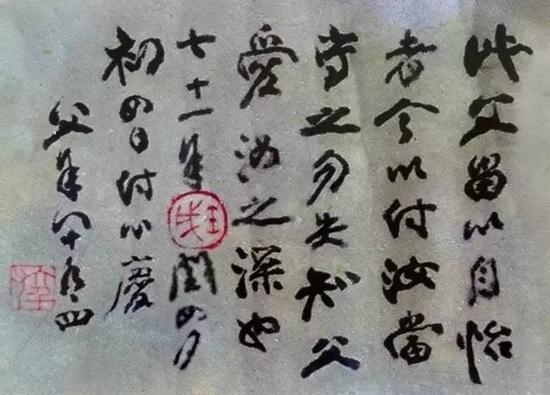 此父留以自怡
者今以付汝當
守之勿失知父
愛汝之深也
七十一年閏四月
初四日付慶
父年十四